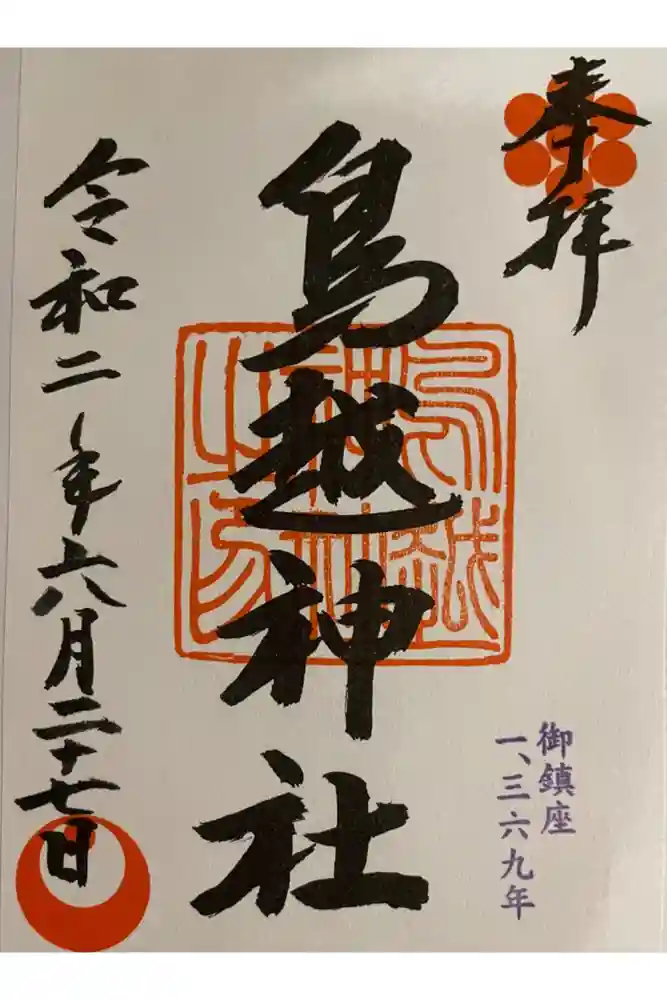 奉拝
御鎮座
一、三六九年
鳥越神社
鳥越
神社
之印
令和二年六月二十七日